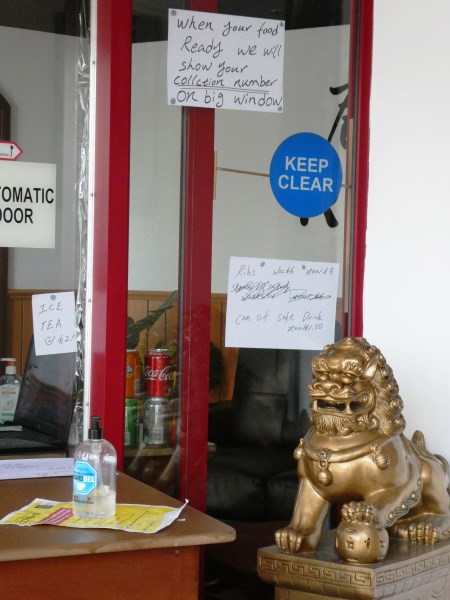 When your food
Ready we will
show your
collction number
on big window
KEEP
CLEAR
TOMATIC
DOOR
Ribs
Can of safe Drink
ICE
TEA
Coca-Cola